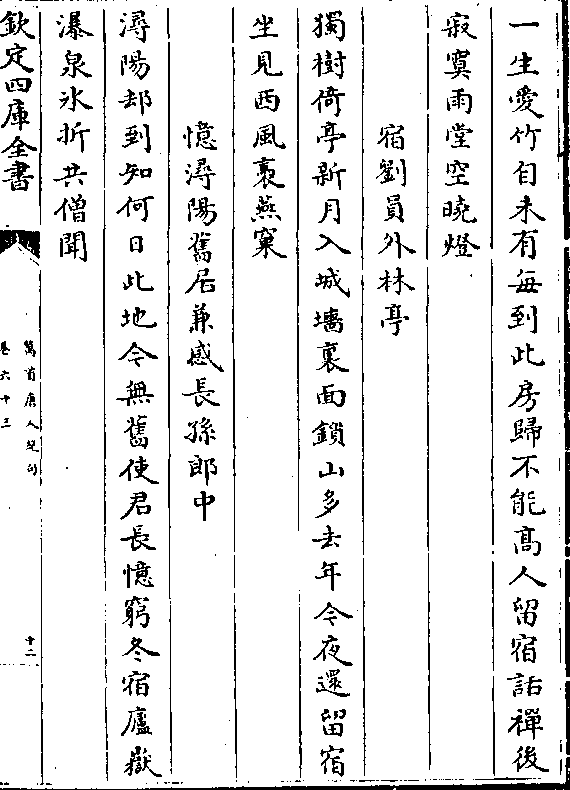 一生愛竹自未有每到此房歸不能高人留宿話禪後
寂寞雨堂空曉燈
宿劉員外林亭
獨樹倚亭新月入城墻裏面鎖山多去年今夜還留宿
坐見西風裛燕窠
憶潯陽舊居兼感長孫郎中
潯陽却到知何日此地今無舊使君長憶窮冬宿廬嶽
瀑泉氷折共僧聞
欽定四庫全書
萬首唐人絶句
卷六十三
十二